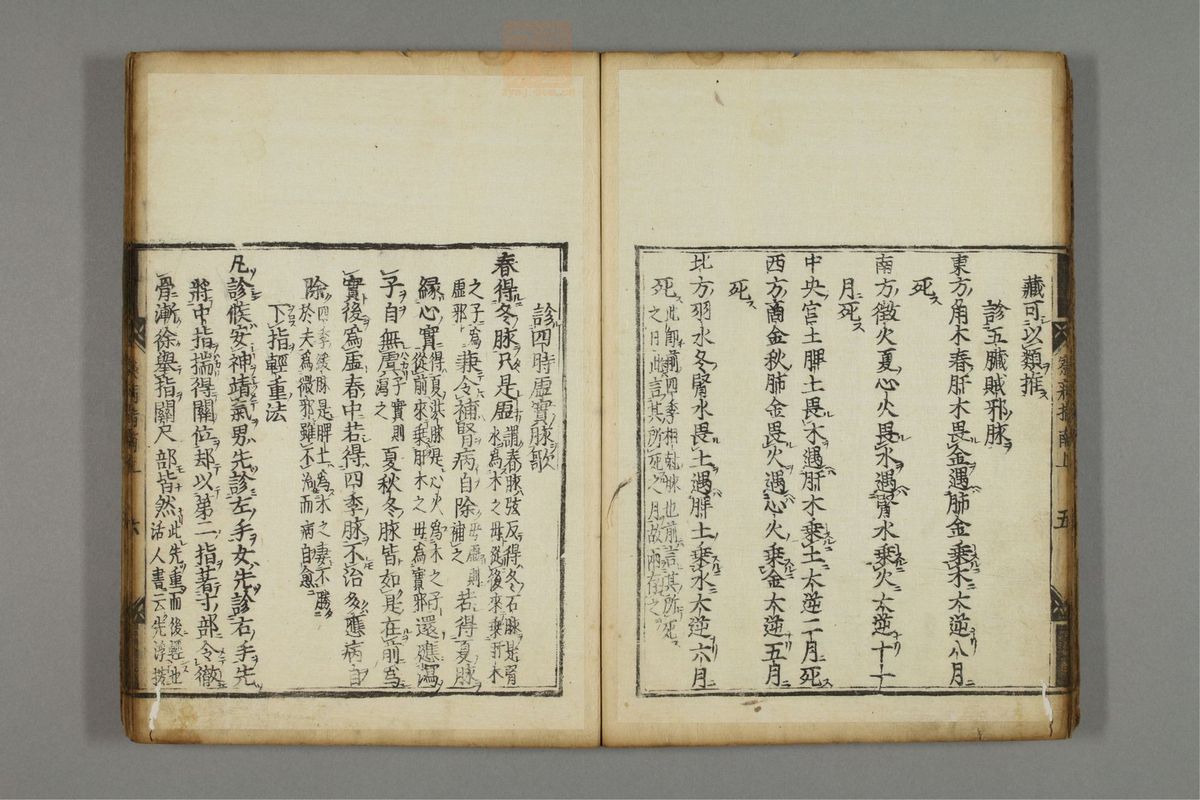 藏可以類推
診五臟賊邪脉
東方角木春肝木畏金遇肺金乗木大逆八月
死
南方徵火夏心火畏水遇腎水乗火大逆十一
月死
中央宫土脾土畏木遇肝木乗土大逆二月死
西方商金秋肺金畏火遇心火乗金大逆五月
死
北方羽水冬腎水畏土遇脾土乗水大逆六月
死此即前四季相尅脉也前言其所死
之月此言其所死之月故兩存之
察病指南上 五
診四時虚實脉歌
春得冬脉只是虚謂春脉弦反得冬石脉是腎
水為木之母從後來乗肝木
之子為
虚邪兼令補腎病自除母虚則
補之若得夏脉
縁心實得夏洪脉是心火為木之子
從前來乗肝木之母為實邪還應瀉
子自無虞子實則
瀉之夏秋冬脉皆如是在前為
實後為虚春中若得四季脉不治多應病自
除四季緩脉是脾土為木之妻不勝
於夫為微邪雖不治而病自愈
下指輕重法
凡診候安神靖氣男先診左手女先診右手先
將中指揣得關位却以第二指著寸部令徹
骨漸徐擧指關尺部皆然此先重而後輕也
活人書云先浮按
病指南上 六